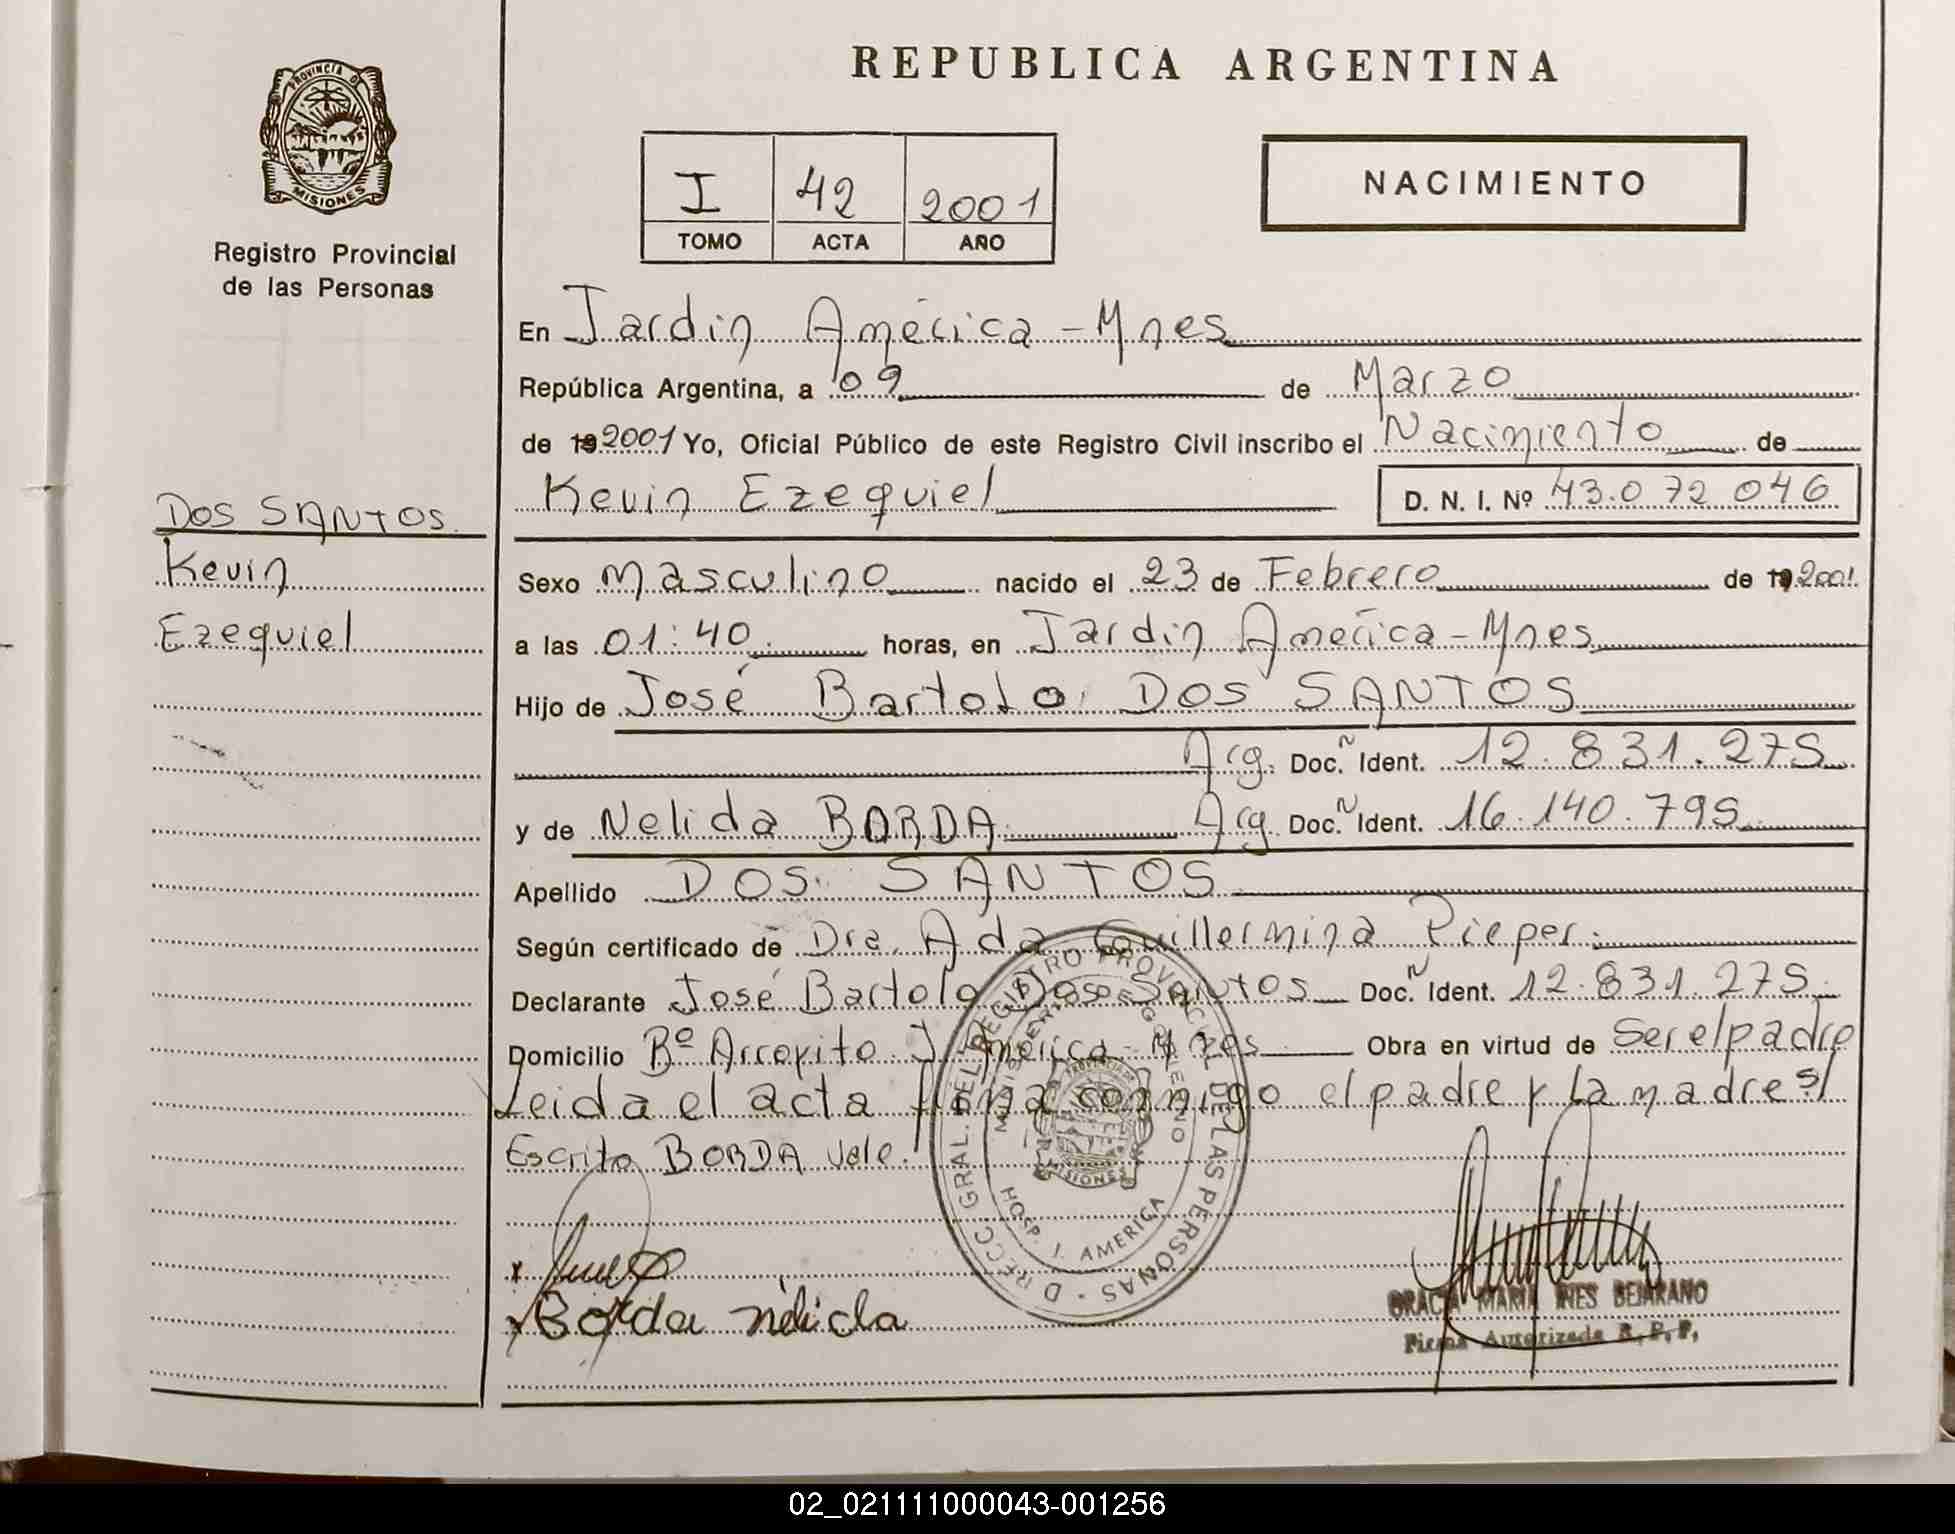 PROVINCIA DE
MISIONES
Registro Provincial
de las Personas
DOS SANTOS
Kevin
Ezequiel
REPUBLICA ARGENTINA
I 42 2001
TOMO ACTA AÑO
NACIMIENTO
En Jardin América - Mnes
República Argentina, a 09 de Marzo
de 19 2001 Yo, Oficial Público de este Registro Civil inscribo el Nacimiento de
Kevin Ezequiel D. N. I. Nº 43.072 046
Sexo Masculino nacido el 23 de Febrero de 19 2001.
a las 01:40 horas, en Jardin América - Mnes
Hijo de José Bartolo DOS SANTOS
Arg. Doc. Ñ Ident. 12.831.275
y de Nelida BORDA Arg. Doc. Ñ Ident. 16.140.795
Apellido DOS SANTOS
Según certificado de Dra. Ada Guillermina Pieper.
Declarante José Bartolo Dos Santos Doc. Ñ Ident. 12.831.275
Domicilio Bº Arroyito J. América - Mnes Obra en virtud de Ser el padre
Leida el acta firma conmigo el padre y La madre S/
Escrito BORDA Vale.
DIRECC GRAL. DEL REGISTRO PROVINCIAL DE LAS PERSONAS
MINISTERIO DE GOBIERNO
PROVINCIA DE
MISIONES
HOSP. J. AMERICA
x
x Borda nélida
GRACIA MARIA INES BEJARANO
Firma Autorizada R. P. P.
02_021111000043-001256